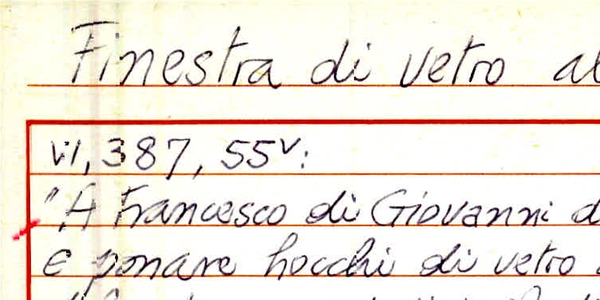 Finestra di vetro al
VII, 387, 55v:
"A Francesco di Giovanni d
E ponare hocchi di vetro